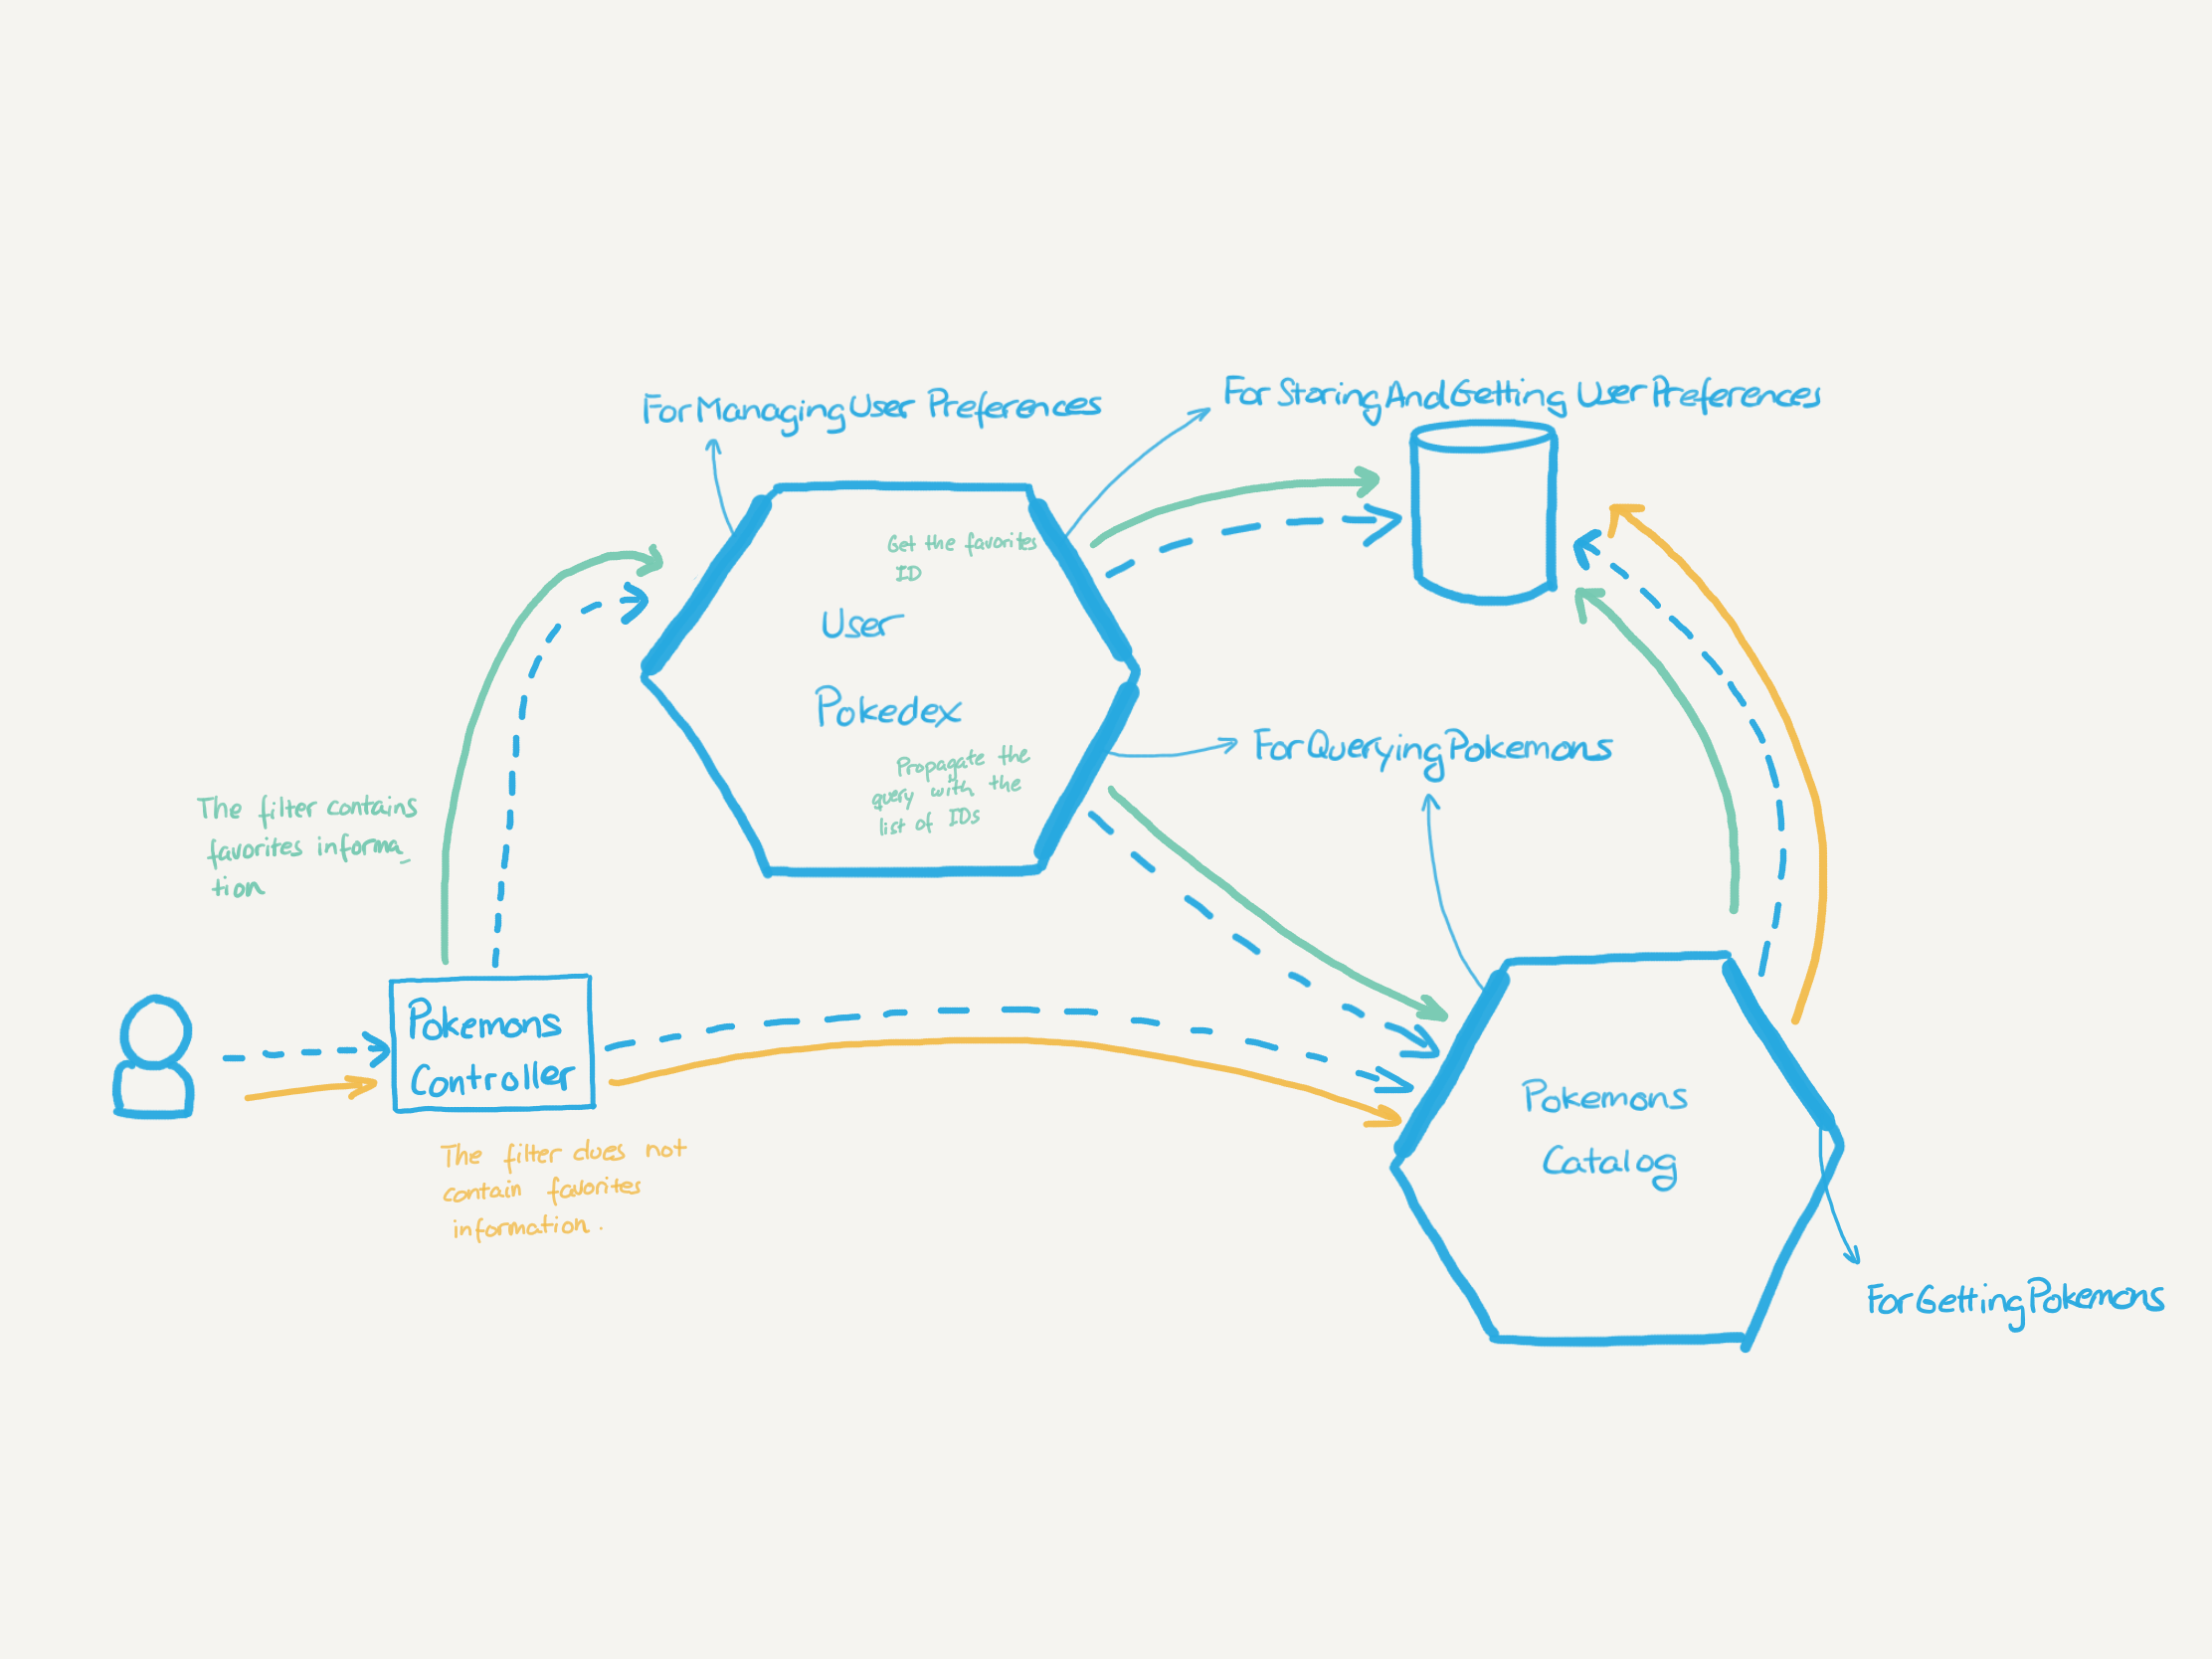 ForManagingUserPreferences
ForStoringAndGetting UserPreferences
Get the favorites
ID
User
Pokedex
Propagate the
query with the
list of IDs
ForQueryingPokemons
The filter contains
favorites informa_
tion
Pokemons
Controller
The filter does not
contain favorites
information.
Pokemons
Catalog
ForGettingPokemons